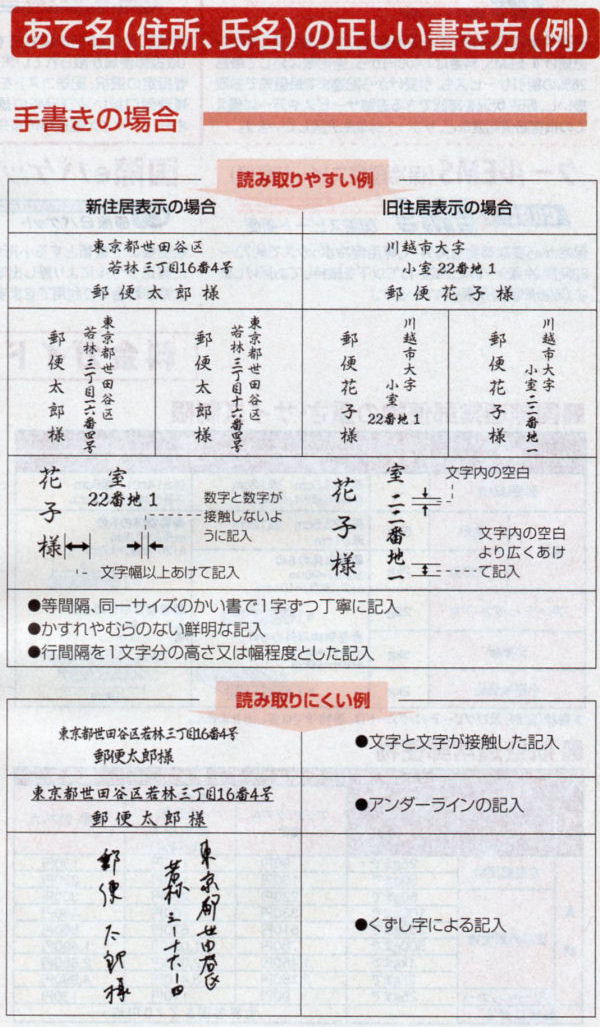 あて名(住所、氏名)の正しい書き方(例)
手書きの場合
読み取りやすい例
新住居表示の場合
旧住居表示の場合
東京都世田谷区
若林三丁目16番4号
郵便太郎様
川越市大字
小室22番地1
郵便花子様
東京都世田谷区
若林三丁目一六番四号
郵便太郎様
東京都世田谷区
若林三丁目十六番四号
郵便太郎様
川越市大字
小室
22番地1
郵便花子様
川越市大字
小室二二番地一
郵便花子様
室
22番地1
花子様
数字と数字が
接触しないよ
うに記入
文字幅以上あけて記入
室二二番地一
花子様
文字内の空白
文字内の空白
より広くあけ
て記入
●等間隔、同一サイズのかい書で1字ずつ丁寧に記入
●かすれやむらのない鮮明な記入
●行間隔を1文字分の高さ又は幅程度とした記入
読み取りにくい例
東京都世田谷区若林三丁目16番4号
郵便太郎様
●文字と文字が接触した記入
東京都世田谷区若林三丁目16番4号
郵便太郎様
●アンダーラインの記入
東京都世田谷区
若林三ー十六ー四
郵便太郎様
●くずし字による記入